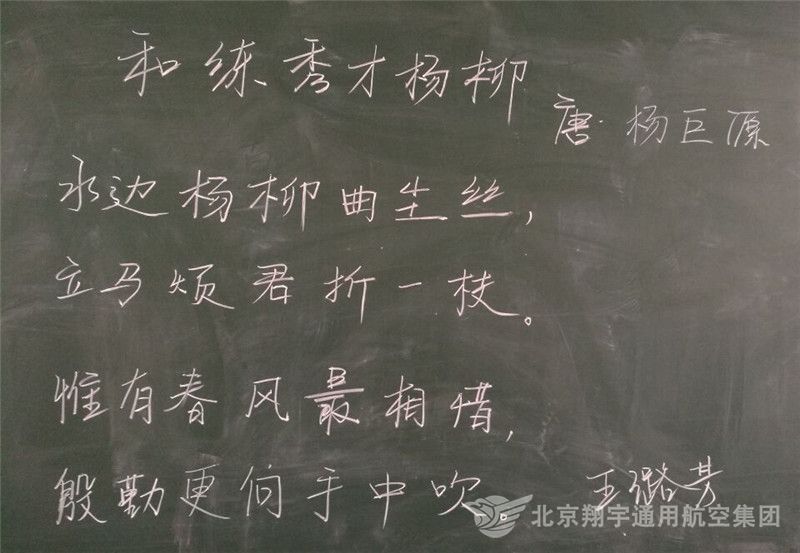 和练秀才杨柳
唐·杨巨源
水边杨柳曲尘丝，
立马烦君折一枝。
惟有春风最相惜，
殷勤更向手中吹。
王璐芳
北京翔宇通用航空集团